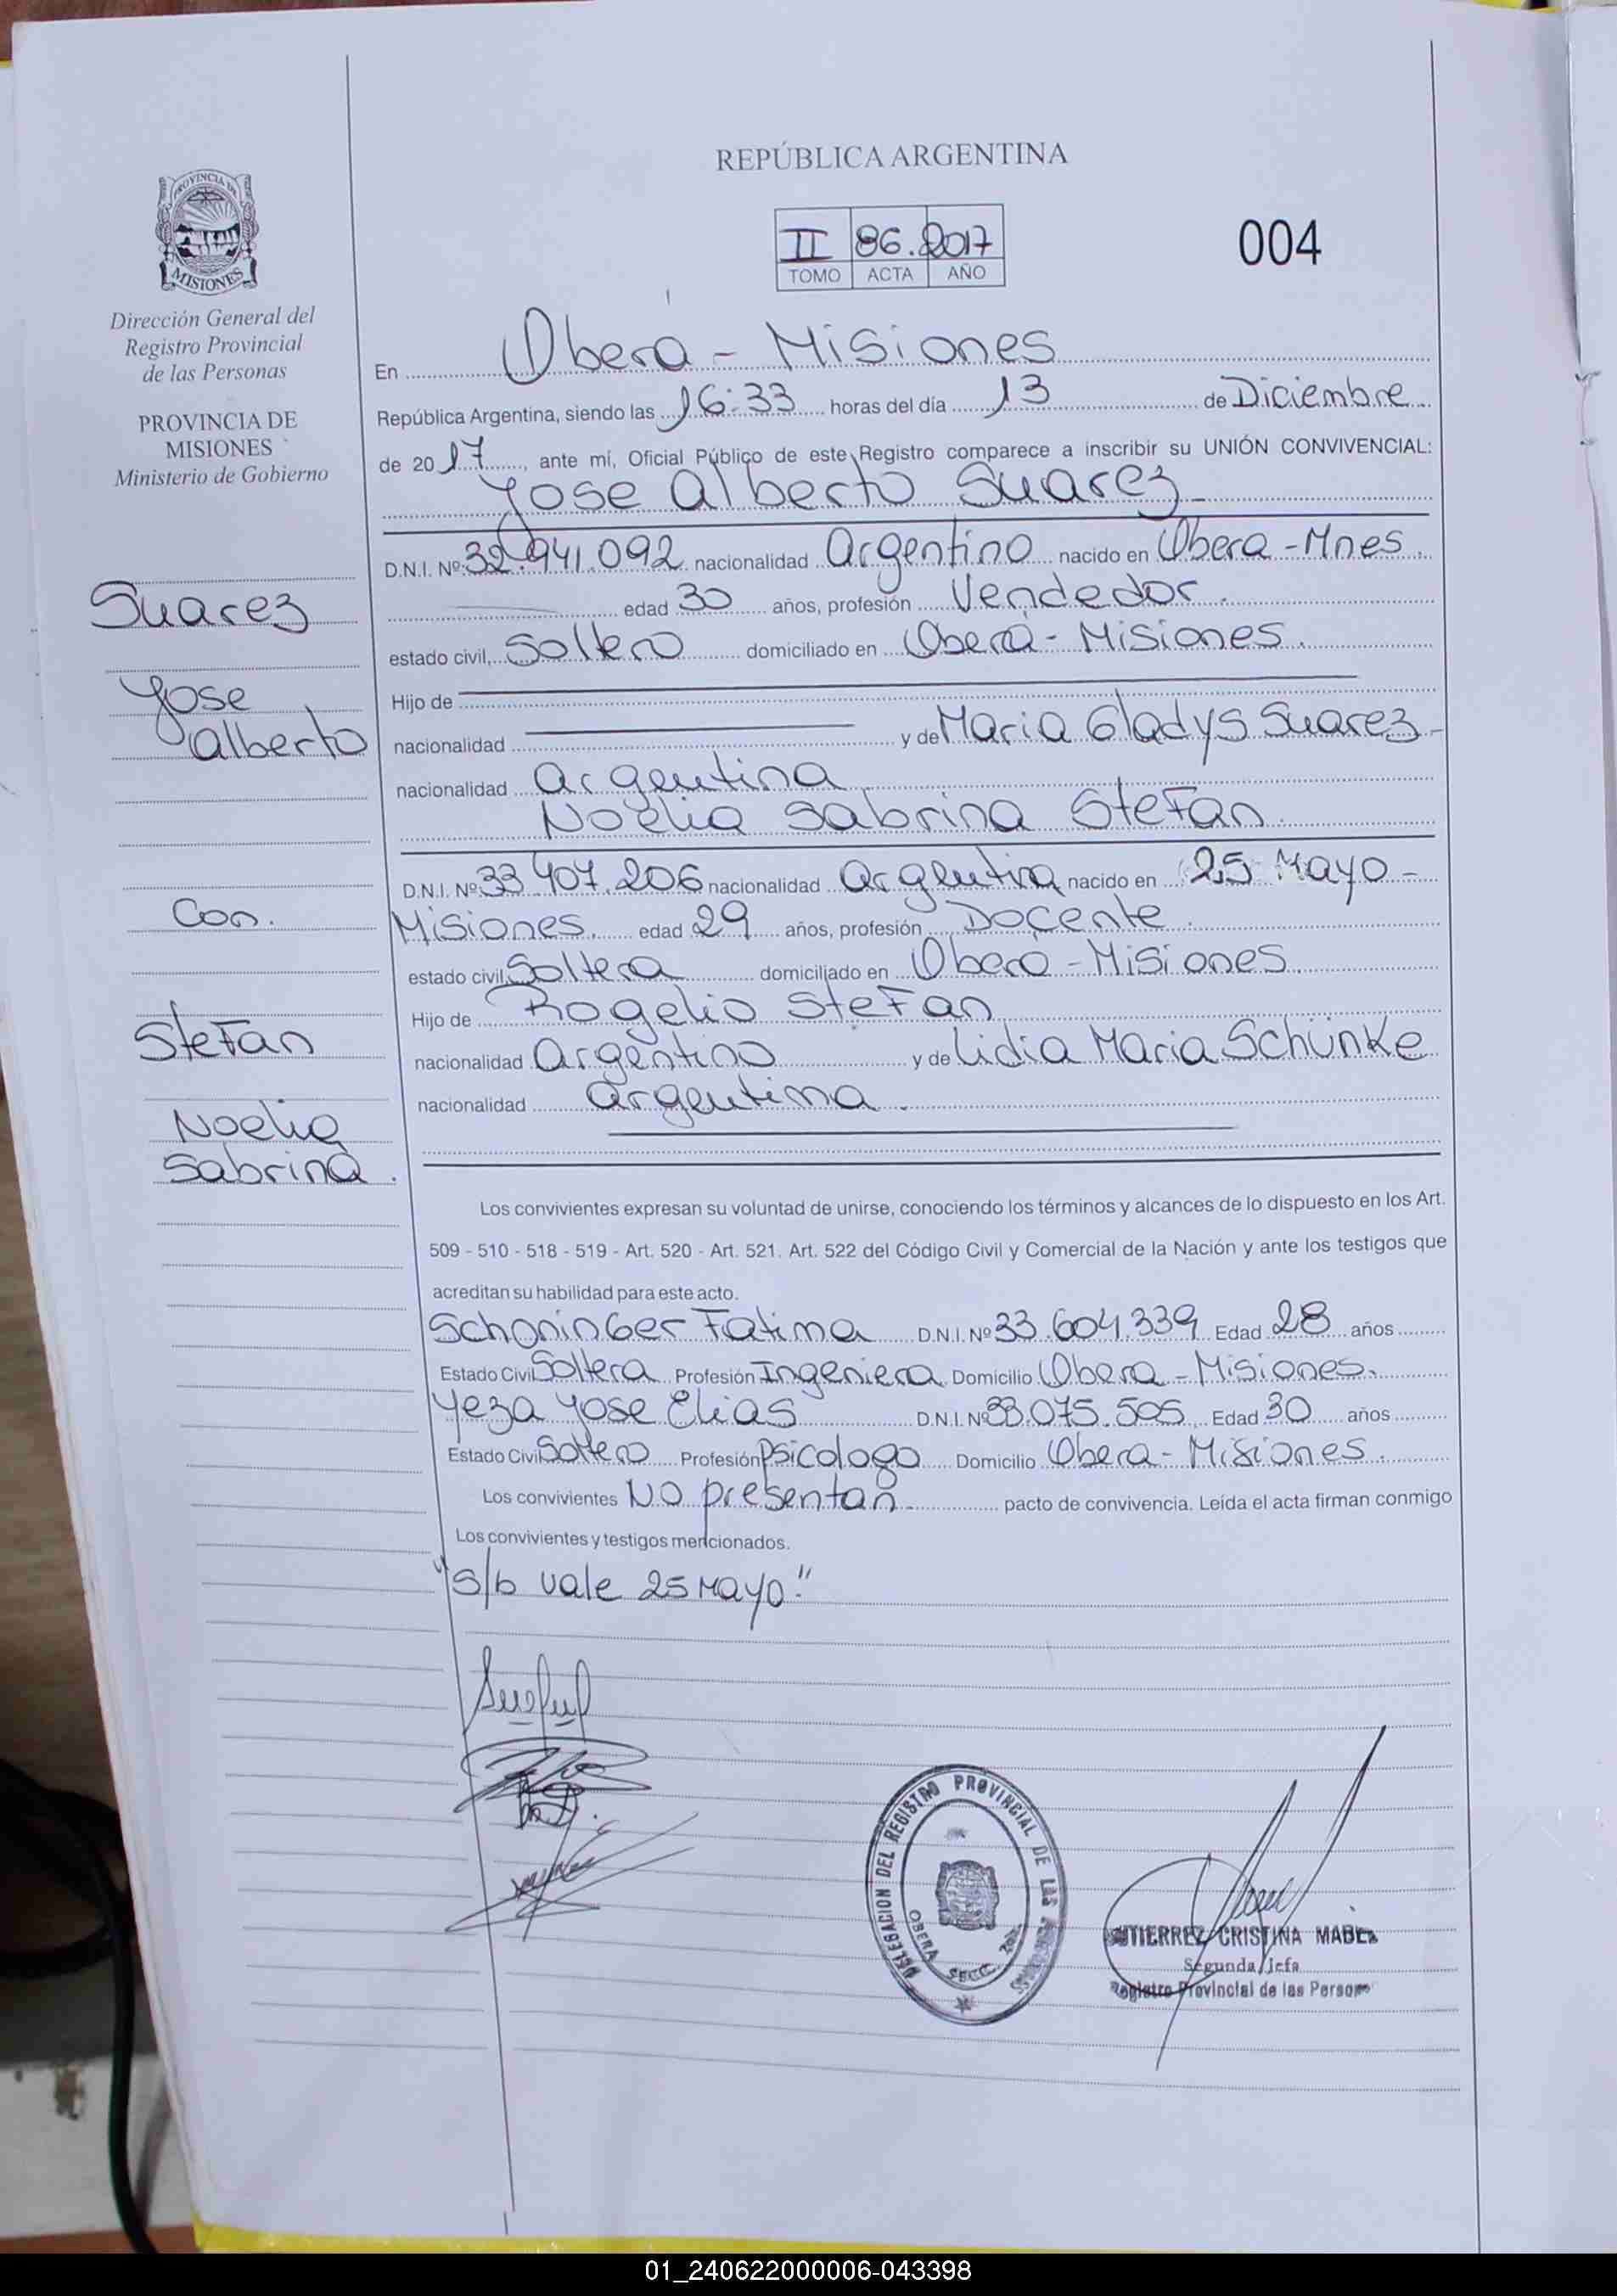 REPÚBLICA ARGENTINA
II 86. 2017
TOMO ACTA AÑO
004
PROVINCIA DE
MISIONES
Dirección General del
Registro Provincial
de las Personas
PROVINCIA DE
MISIONES
Ministerio de Gobierno
Suarez
Jose
Alberto
Con.
Stefan
Noelia
Sabrina.
En Oberá - Misiones
República Argentina, siendo las 16:33 horas del día 13 de Diciembre
de 2017, ante mí, Oficial Público de este Registro comparece a inscribir su UNIÓN CONVIVENCIAL:
Jose Alberto Suarez
D.N.I. Nº 32.941.092 nacionalidad Argentino nacido en Obera - Mnes.
edad 30 años, profesión Vendedor.
estado civil, Soltero domiciliado en Oberá - Misiones.
Hijo de
nacionalidad y de Maria Gladys Suarez
nacionalidad Argentina
Noelia Sabrina Stefan
D.N.I. Nº 33 407.206 nacionalidad Argentina nacido en 25 Mayo -
Misiones. edad 29 años, profesión Docente.
estado civil Soltera domiciliado en Oberá - Misiones
Hijo de Rogelio Stefan
nacionalidad Argentino y de Lidia Maria Schünke
nacionalidad argentina.
Los convivientes expresan su voluntad de unirse, conociendo los términos y alcances de lo dispuesto en los Art.
509 - 510 - 518 - 519 - Art. 520 - Art. 521. Art. 522 del Código Civil y Comercial de la Nación y ante los testigos que
acreditan su habilidad para este acto.
Schoninger Fatima D.N.I. Nº 33.604.339 Edad 28 años
Estado Civil Soltera Profesión Ingeniera Domicilio Obera - Misiones.
Yeza Jose Elias D.N.I. Nº 33.075.505 Edad 30 años
Estado Civil Soltero Profesión Psicologo Domicilio Obera - Misiones.
Los convivientes No presentan pacto de convivencia. Leída el acta firman conmigo
Los convivientes y testigos mencionados.
"s/b vale 25 Mayo."
DELEGACION DEL REGISTRO PROVINCIAL DE LAS
OBERA SECC.
CRISTINA MABEL
Segunda Jefa
Registro Provincial de las Personas
01_240622000006-043398